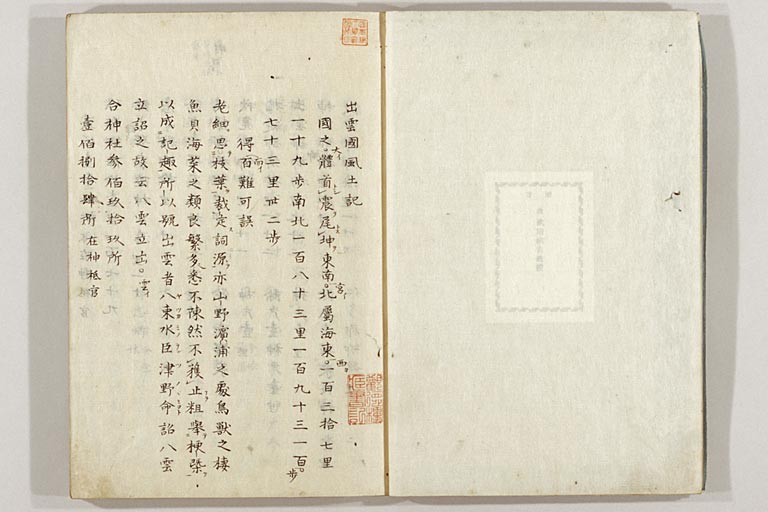 出雲國風土記
國之大體首震尾坤東南宮北屬海東西一百三拾七里
一十九步南北一百八十三里一百九十三一百步
七十三里卅二步
得而難可誤
老細思枝葉裁定詞源亦山野濱浦之處鳥獸之棲
魚貝海菜之類良繁多悉不陳然不獲止粗舉梗槩
以成記趣所以號出雲者八束水臣津野命詔八雲
立詔之故云八雲立出雲
合神社參佰玖拾玖所
壹佰捌拾肆所在神祗官